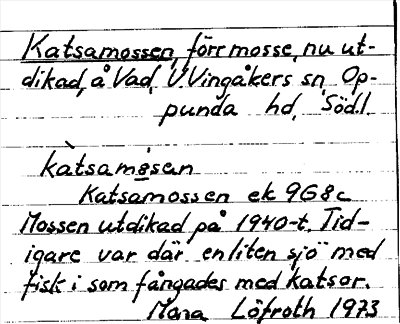 Katsamossen, förr mosse, nu ut-
dikad, å Vad, V. Vingåkers sn, Op-
punda hd, Södl.
kàtsamåsen
Katsamossen ek 9G8c
Mossen utdikad på 1940-t. Tid-
igare var där en liten sjö med
fisk i som fångades med katsor.
Mana Löfroth 1973